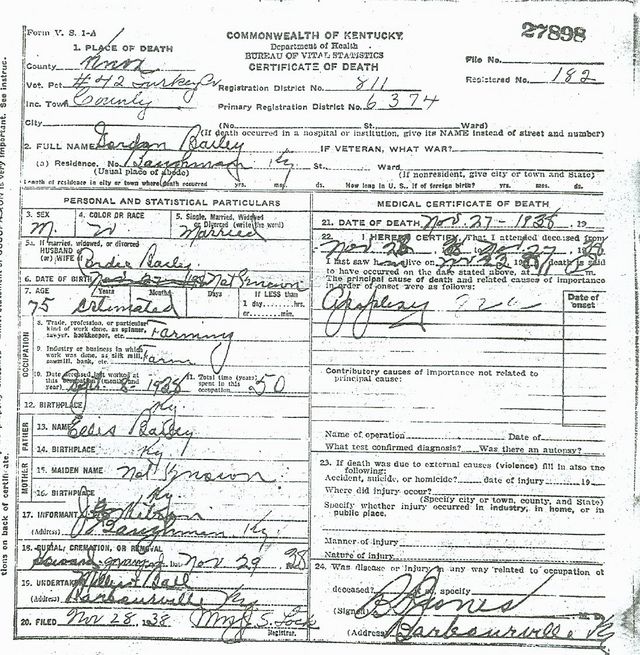 Form V. S. 1-A
COMMONWEALTH OF KENTUCKY
27898
Department of Health
BUREAU OF VITAL STATISTICS
CERTIFICATE OF DEATH
1. PLACE OF DEATH
County Knox
File No.
Vot. Pct. #42 Turkey Cr Registration District No. 811
Registered No. 182
Inc. Town County Primary Registration District No. 6374
City (No. St. Ward)
(If death occurred in a hospital or institution, give its NAME instead of street and number)
2. FULL NAME Gordon Bailey IF VETERAN, WHAT WAR?
(a) Residence. No. Baughman Ky St. Ward
(Usual place of abode) (If nonresident, give city or town and State)
Length of residence in city or town where death occurred yrs. mos. ds. How long in U. S., if of foreign birth? yrs. mos. ds.
PERSONAL AND STATISTICAL PARTICULARS
3. SEX M. 4. COLOR OR RACE W 5. Single, Married, Widowed or Divorced (write the word) Married
5a. If married, widowed, or divorced
HUSBAND of
(or) WIFE of Bailey
6. DATE OF BIRTH Not Known
7. AGE Years Months Days If LESS than
75 Estimated 1 day,....hrs.
or....min.
OCCUPATION
8. Trade, profession, or particular kind of work done, as spinner, sawyer, bookkeeper, etc. Farming
9. Industry or business in which work was done, as silk mill, sawmill, bank, etc. Farm
10. Date deceased last worked at this occupation (month and year) 1938 11. Total time (years) spent in this occupation 50
12. BIRTHPLACE Ky.
FATHER
13. NAME Bailey
14. BIRTHPLACE Ky
MOTHER
15. MAIDEN NAME Not Known
16. BIRTHPLACE Ky
17. INFORMANT
(Address) Baughman Ky.
18. BURIAL, CREMATION, OR REMOVAL
Nov 29 38
19. UNDERTAKER Ball
(Address) Barbourville Ky
20. FILED Nov 28 1938 S. Lock
Registrar.
MEDICAL CERTIFICATE OF DEATH
21. DATE OF DEATH Nov. 27 - 1938 19
22. I HEREBY CERTIFY, That I attended deceased from
Nov.
I last saw h alive on death is said
to have occurred on the date stated above, at m.
The principal cause of death and related causes of importance
in order of onset were as follows:
Date of onset
Contributory causes of importance not related to
principal cause:
Name of operation Date of
What test confirmed diagnosis? Was there an autopsy?
23. If death was due to external causes (violence) fill in also the
following:
Accident, suicide, or homicide? date of injury 19
Where did injury occur?
(Specify city or town, county, and State)
Specify whether injury occurred in industry, in home, or in
public place.
Manner of injury
Nature of injury
24. Was disease or injury in any way related to occupation of
deceased? If so, specify
(Signed) Jones
(Address) Barbourville Ky